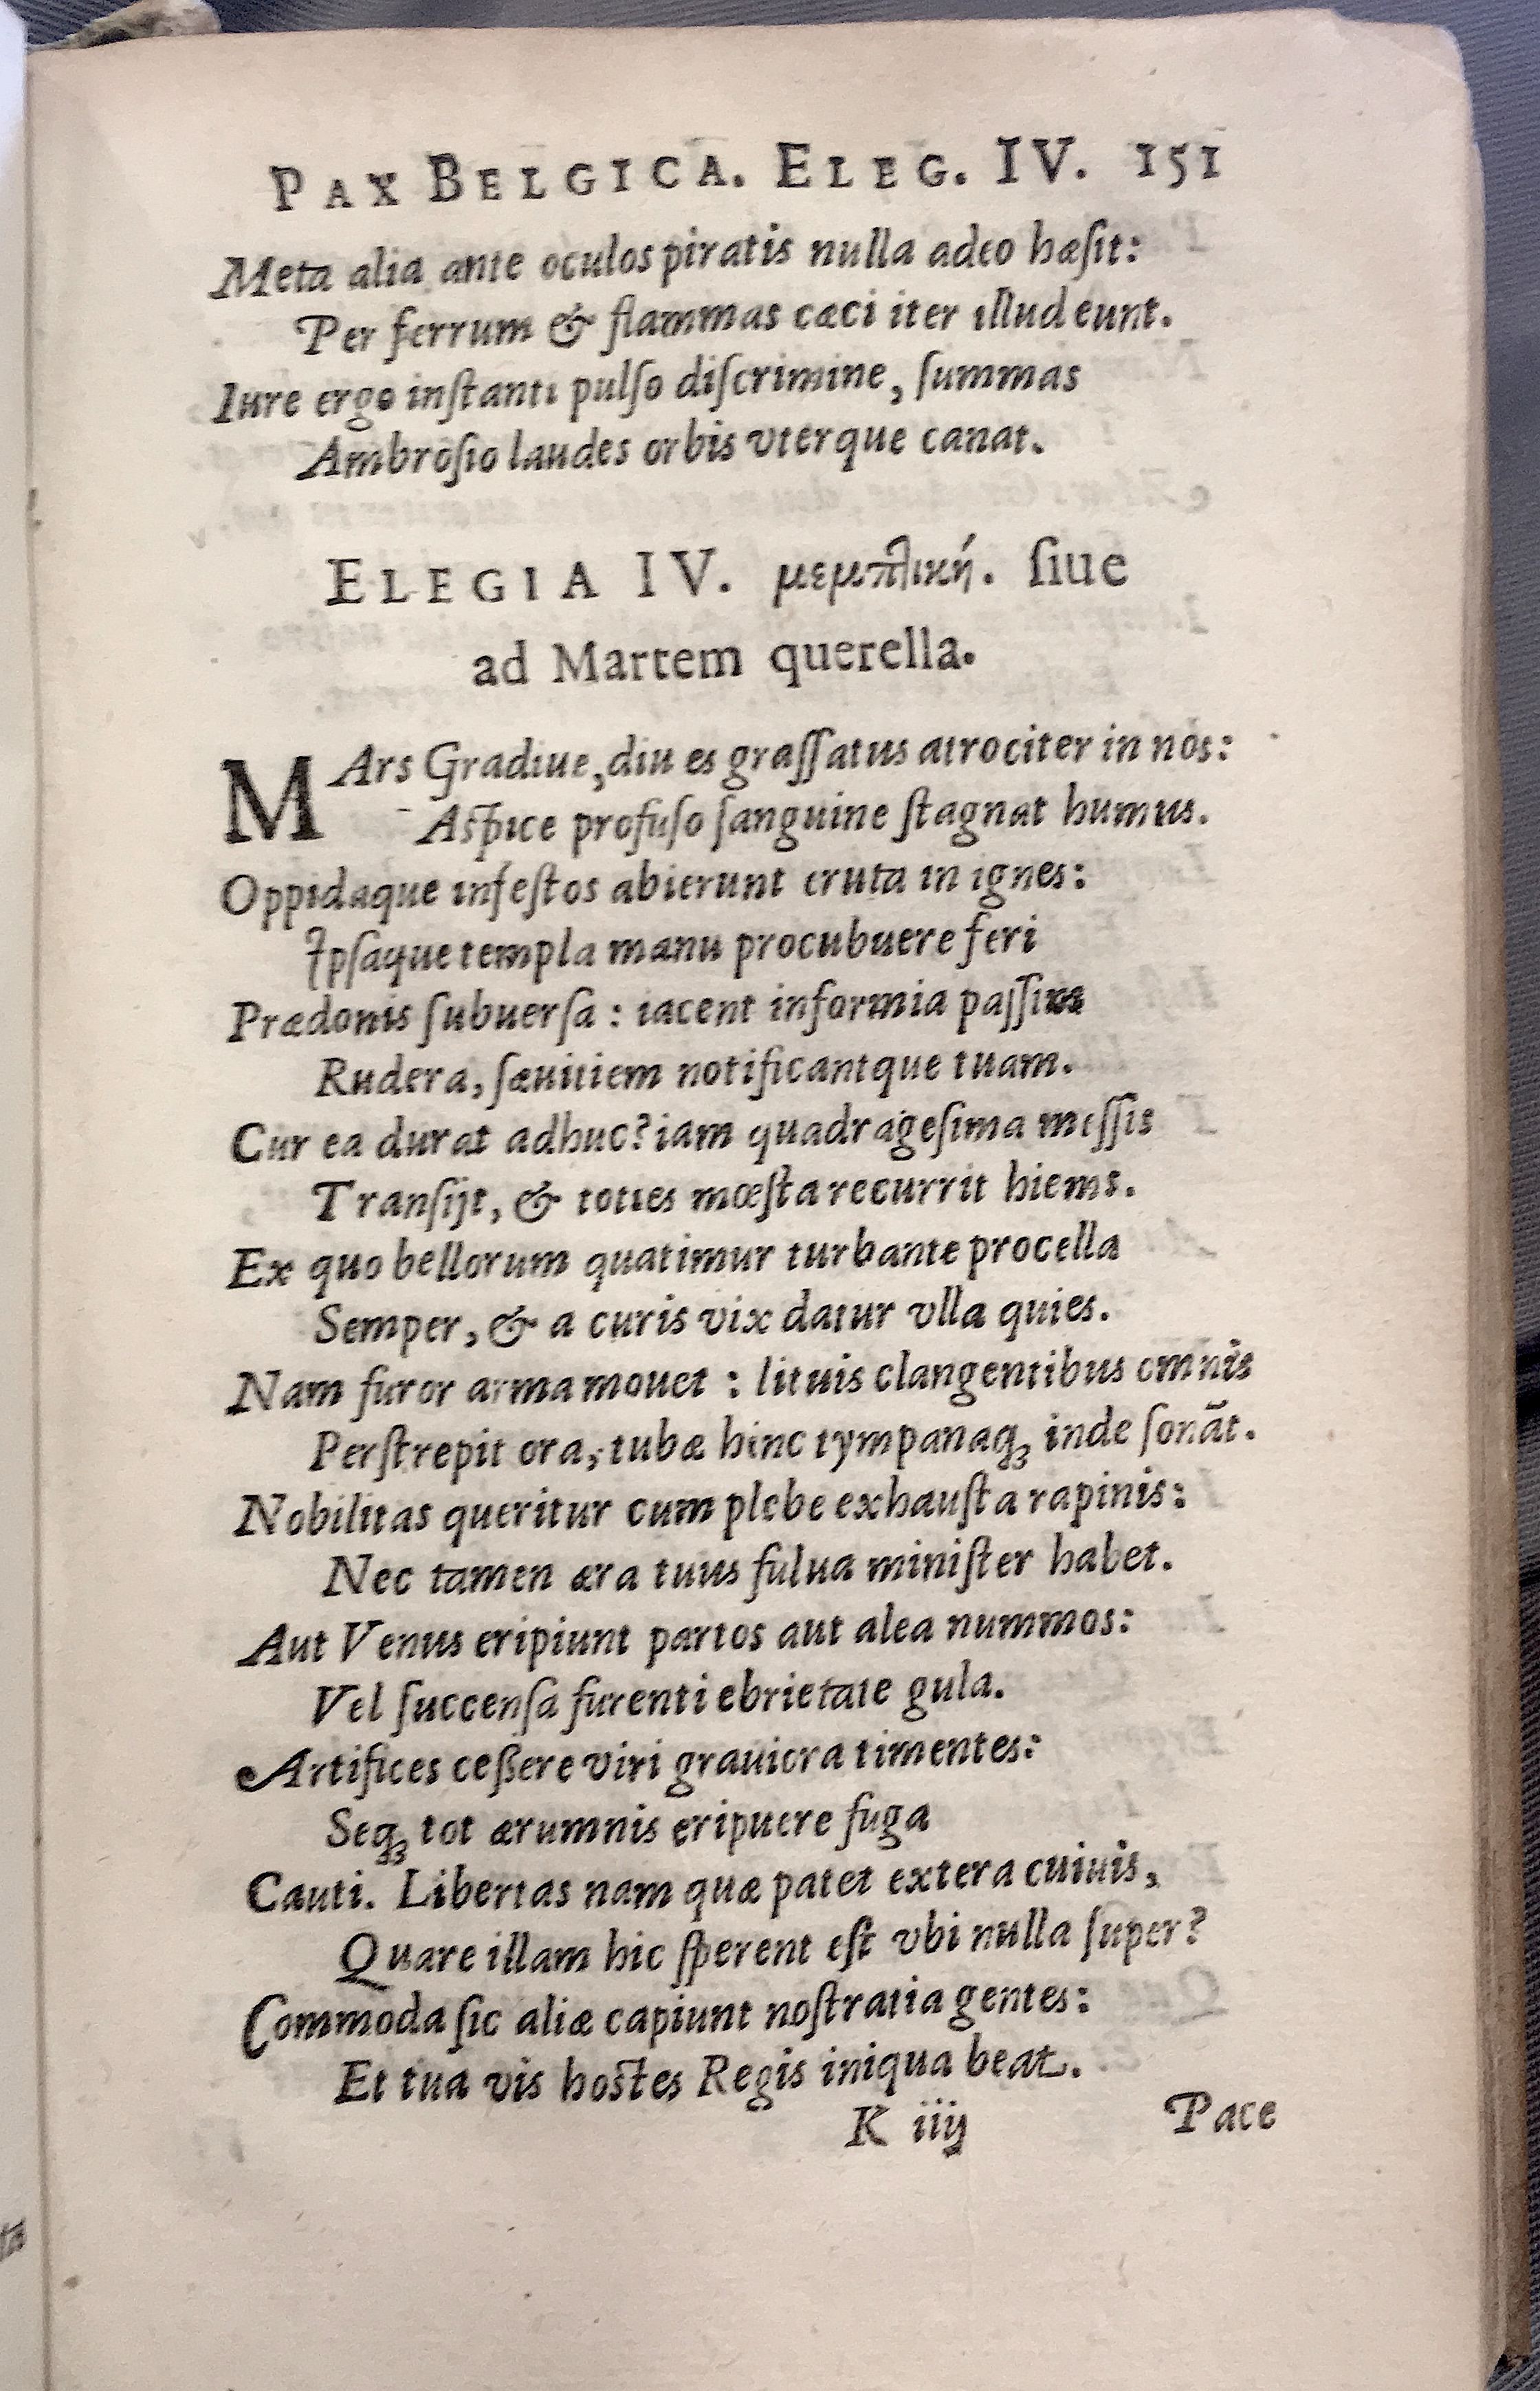 PAX BELGICA. ELEG. IV. 151
Meta alia ante oculos piratis nulla adeo hæſit:
Per ferrum & flammas cæci iter illud eunt.
Iure ergo inſtanti pulſo diſcrimine, ſummas
Ambroſio laudes orbis vterque canat.
ELEGIA IV. μεμπτική. ſiue
ad Martem querella.
MArs Gradiue, diu es graſſatus atrociter in nos:
Aſpice profuſo ſanguine ſtagnat humus.
Oppidaque infeſtos abierunt eruta in ignes:
Ipſaque templa manu procubuere feri
Prædonis ſubuerſa: iacent informia paſſim
Rudera, ſæuitiem notificantque tuam.
Cur ea durat adhuc? iam quadrageſima meſſis
Tranſijt, & toties mœſta recurrit hiems.
Ex quo bellorum quatimur turbante procella
Semper, & a curis vix datur vlla quies.
Nam furor arma mouet: lituis clangentibus omnis
Perſtrepit ora; tubæ hinc tympanaqꝫ inde ſonāt.
Nobilitas queritur cum plebe exhauſta rapinis:
Nec tamen æra tuus fulua miniſter habet.
Aut Venus eripiunt partos aut alea nummos:
Vel ſuccenſa furenti ebrietate gula.
Artifices ceßere viri grauiora timentes:
Seqꝫ tot ærumnis eripuere fuga
Cauti. Libertas nam quæ patet extera cuiuis,
Quare illam hic ſperent eſt vbi nulla ſuper?
Commoda ſic aliæ capiunt noſtratia gentes:
Et tua vis hoſtes Regis iniqua beat.
K iiij Pace
ta